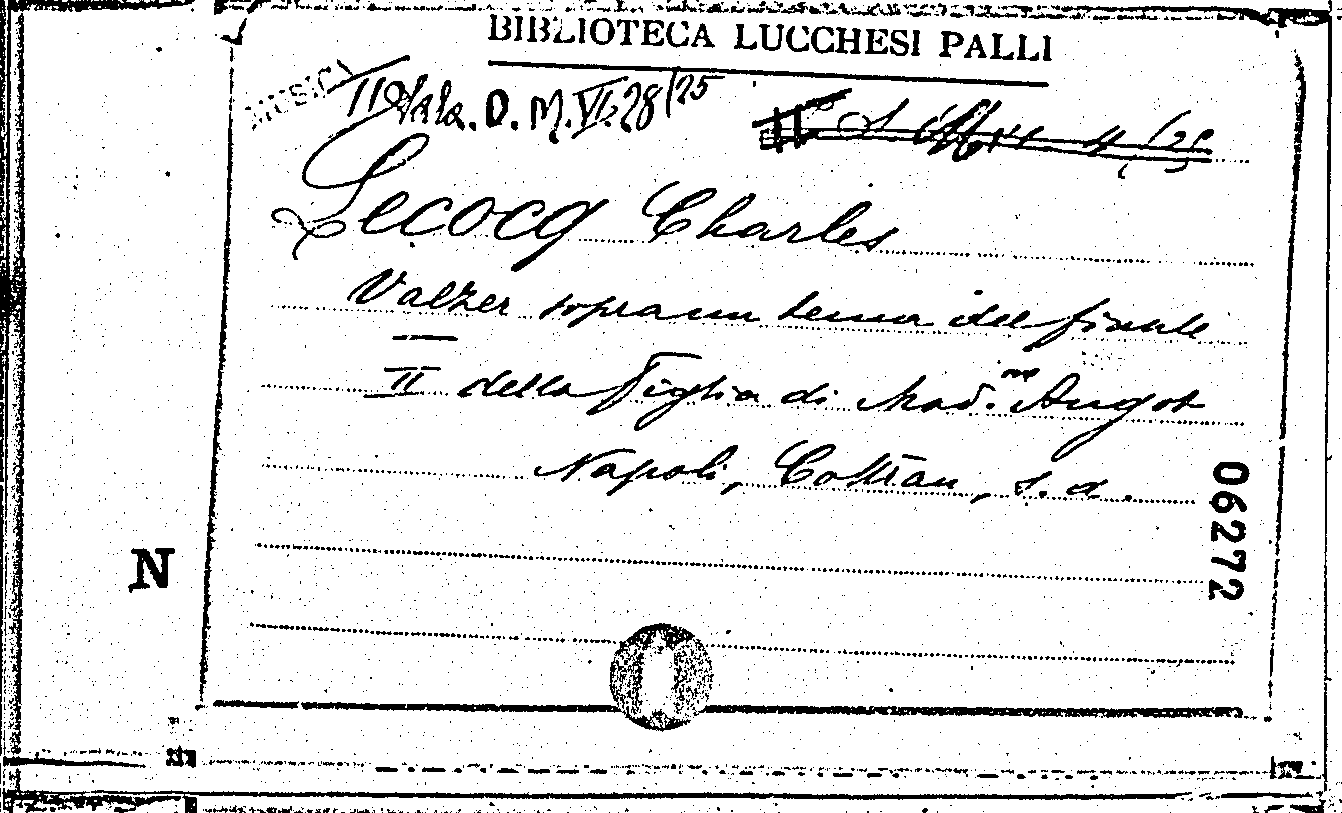 BIBLIOTECA LUCCHESI PALLI
MUSICA II Sala. D. M. VI. 28/25
Lecocq Charles
Valzer sopra un tema del finale
II della Figlia di Mad.me Angot
Napoli, Cottrau, s. d.
06272
N